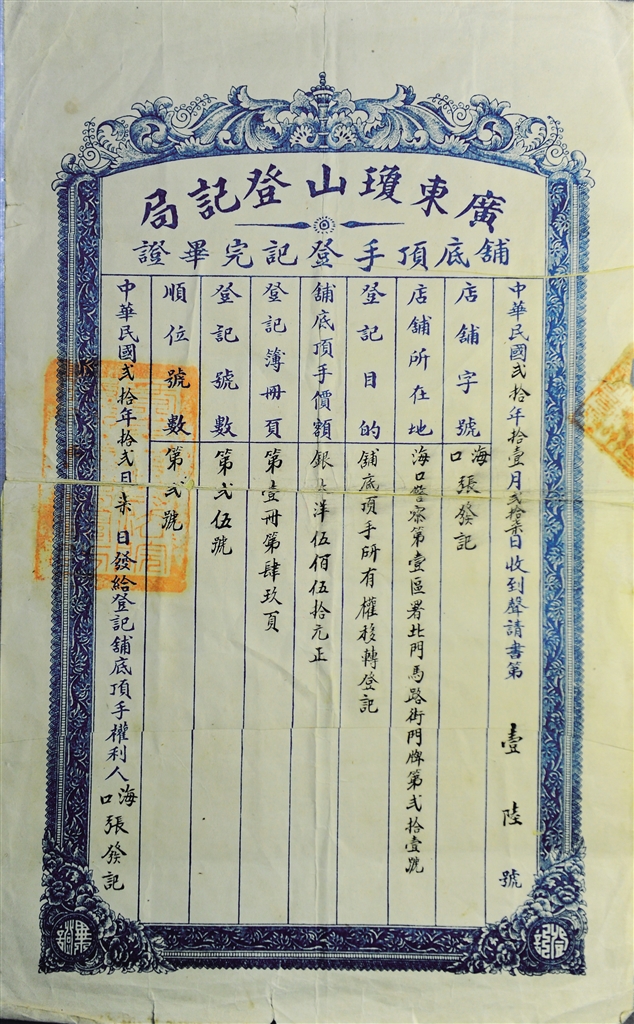 廣東瓊山登記局
舖底頂手登記完畢證
中華民國弍拾年拾壹月弍拾柒日收到聲請書第壹陸號
店舖字號 海口張發記
店舖所在地 海口警察第壹區署北門馬路街門牌第弍拾壹號
登記目的 舖底頂手所有權移轉登記
舖底頂手價額 銀大洋伍佰伍拾元正
登記簿冊頁 第壹冊第肆玖頁
登記號數 第弍伍號
順位號數 第弍號
中華民國弍拾年拾弍月柒日發給登記舖底頂手權利人海口張發記